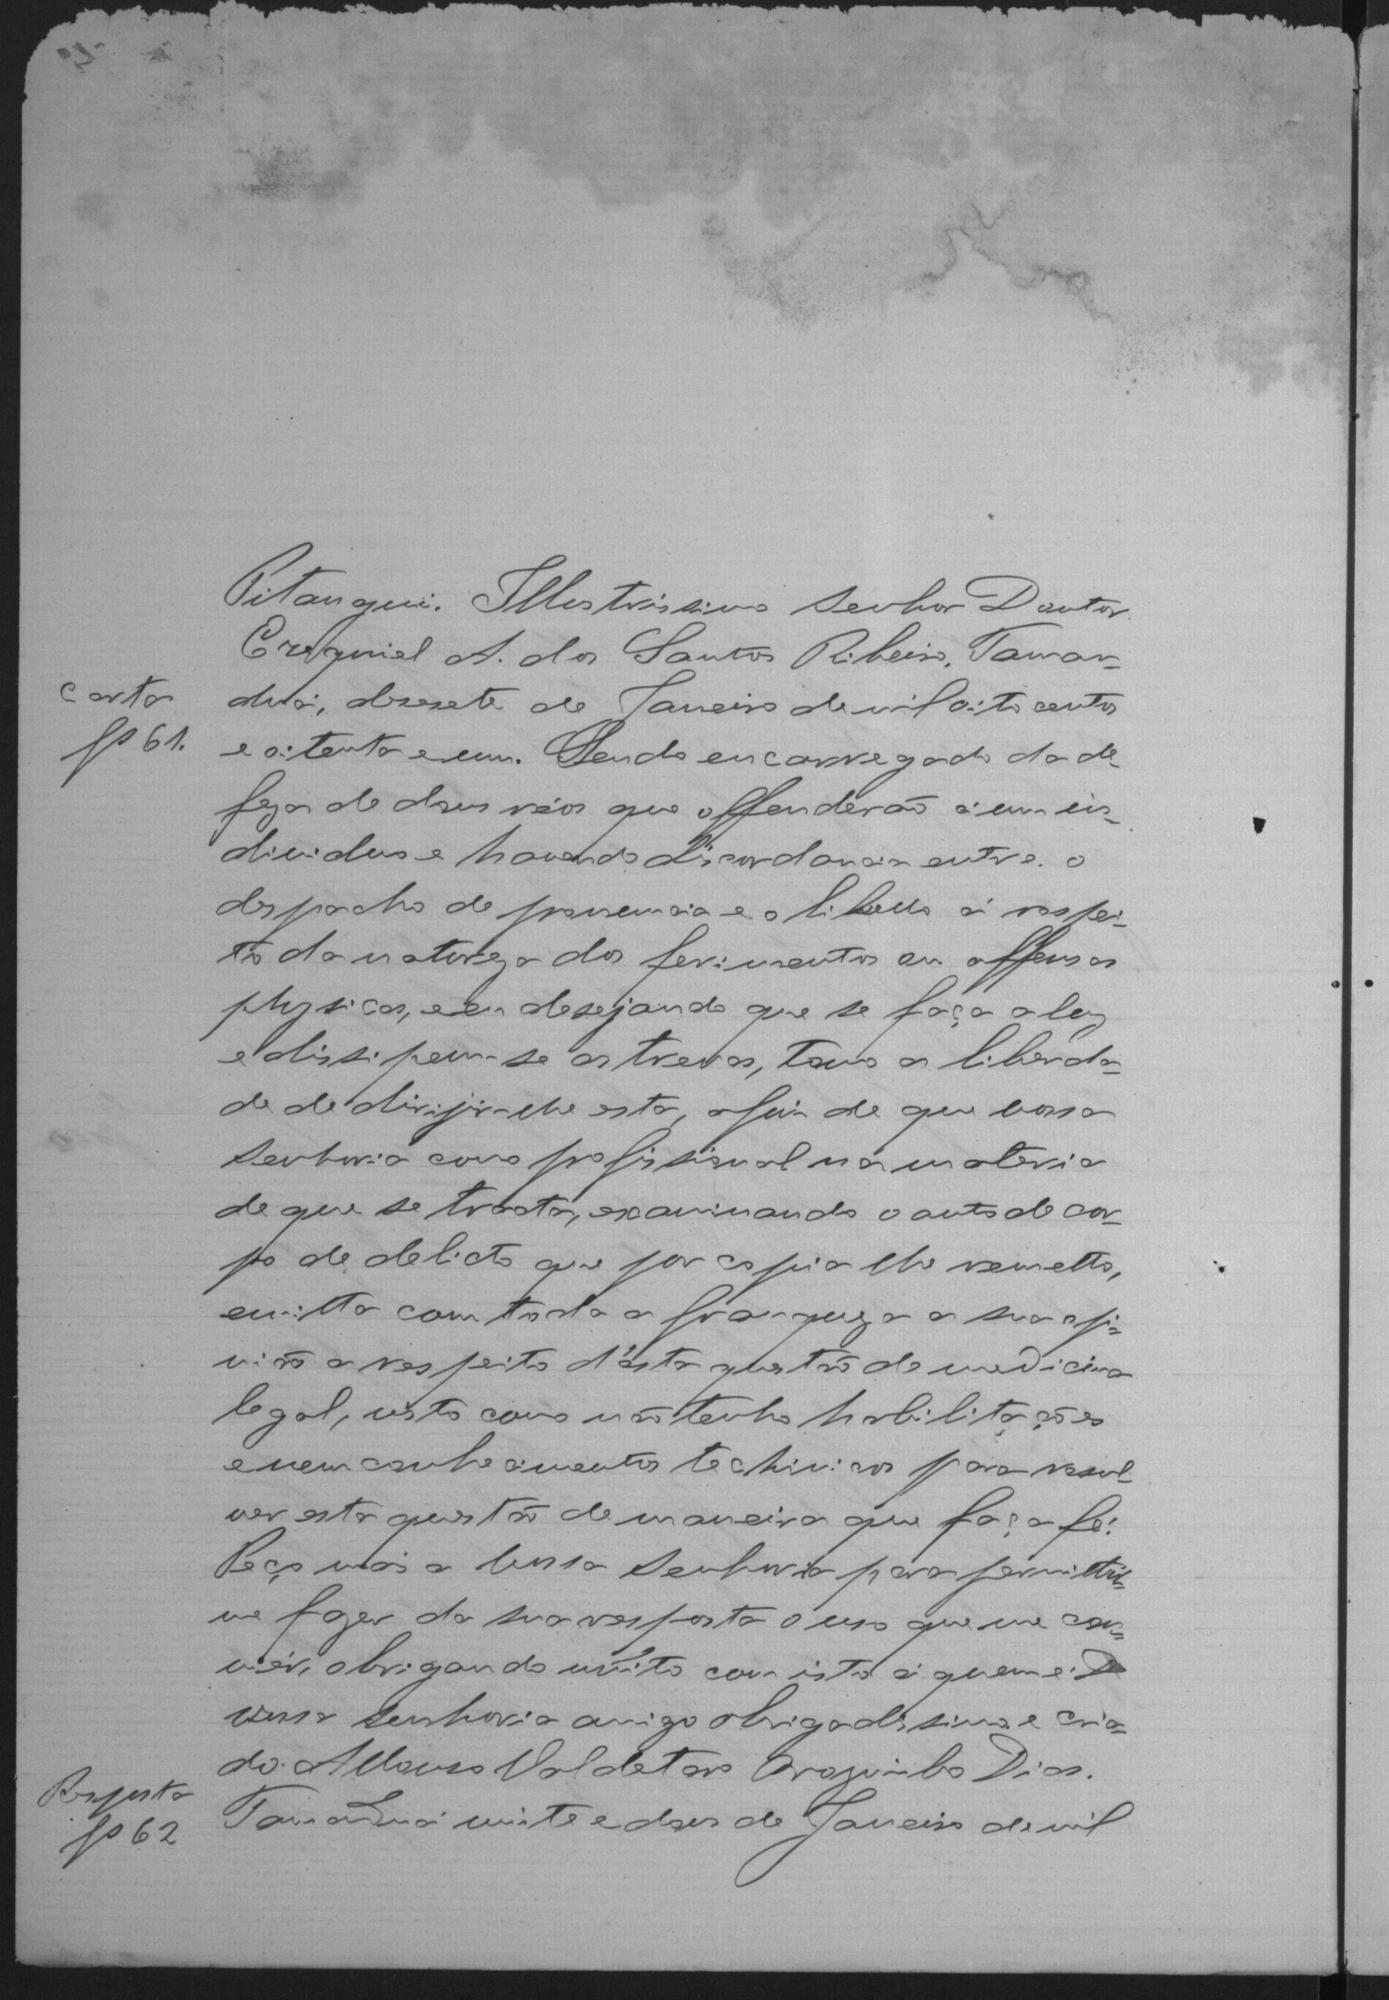 Pitanguí. Illustrissimo Senhor Doutor
Ezequiel A. dos Santos Ribeiro. Taman-
Carta
fs 61.
duá, desesete de Janeiro de mil oito centos
e oitenta e um. Sendo encarregado da de-
feza de dous réos que offenderão á um in-
dividuo e havendo discordancia entre o
despacho de pronuncia e o libello á respei-
to da natureza dos ferimentos ou offensas
physicas, e eu desejando que se faça a luz
e dissipem-se as trevas, tomo a liberda-
de de dirijir-lhe esta, afim de que vossa
Senhoria como profissional na materia
de que se tracta, examinando o auto de cor-
po de delicto que por copia lhe remetto,
emitta com toda a franqueza a sua opi-
nião a respeito d'esta questão de medicina
legal, visto como não tenho habilitações
e nem conhecimentos technicos para resol-
ver esta questão de maneira que faça fé.
Peço mais a vossa Senhoria para permittir-
me fazer da sua resposta o uso que me con-
vier, obrigando muito com isto á quem é De
vossa Senhoria amigo obrigadissimo e cria-
do. Affonso Valdetaro Orozimbo Dias.
Resposta
fs 62
Tamanduá vinte e dous de Janeiro de mil